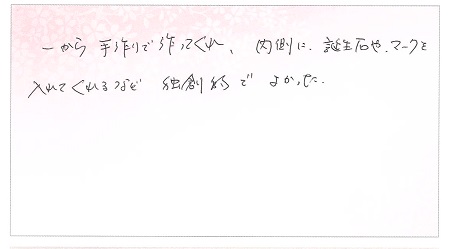 一から手作りで作ってくれ、内側に、誕生石や、マークを
入れてくれるなど 独創的で よかった.